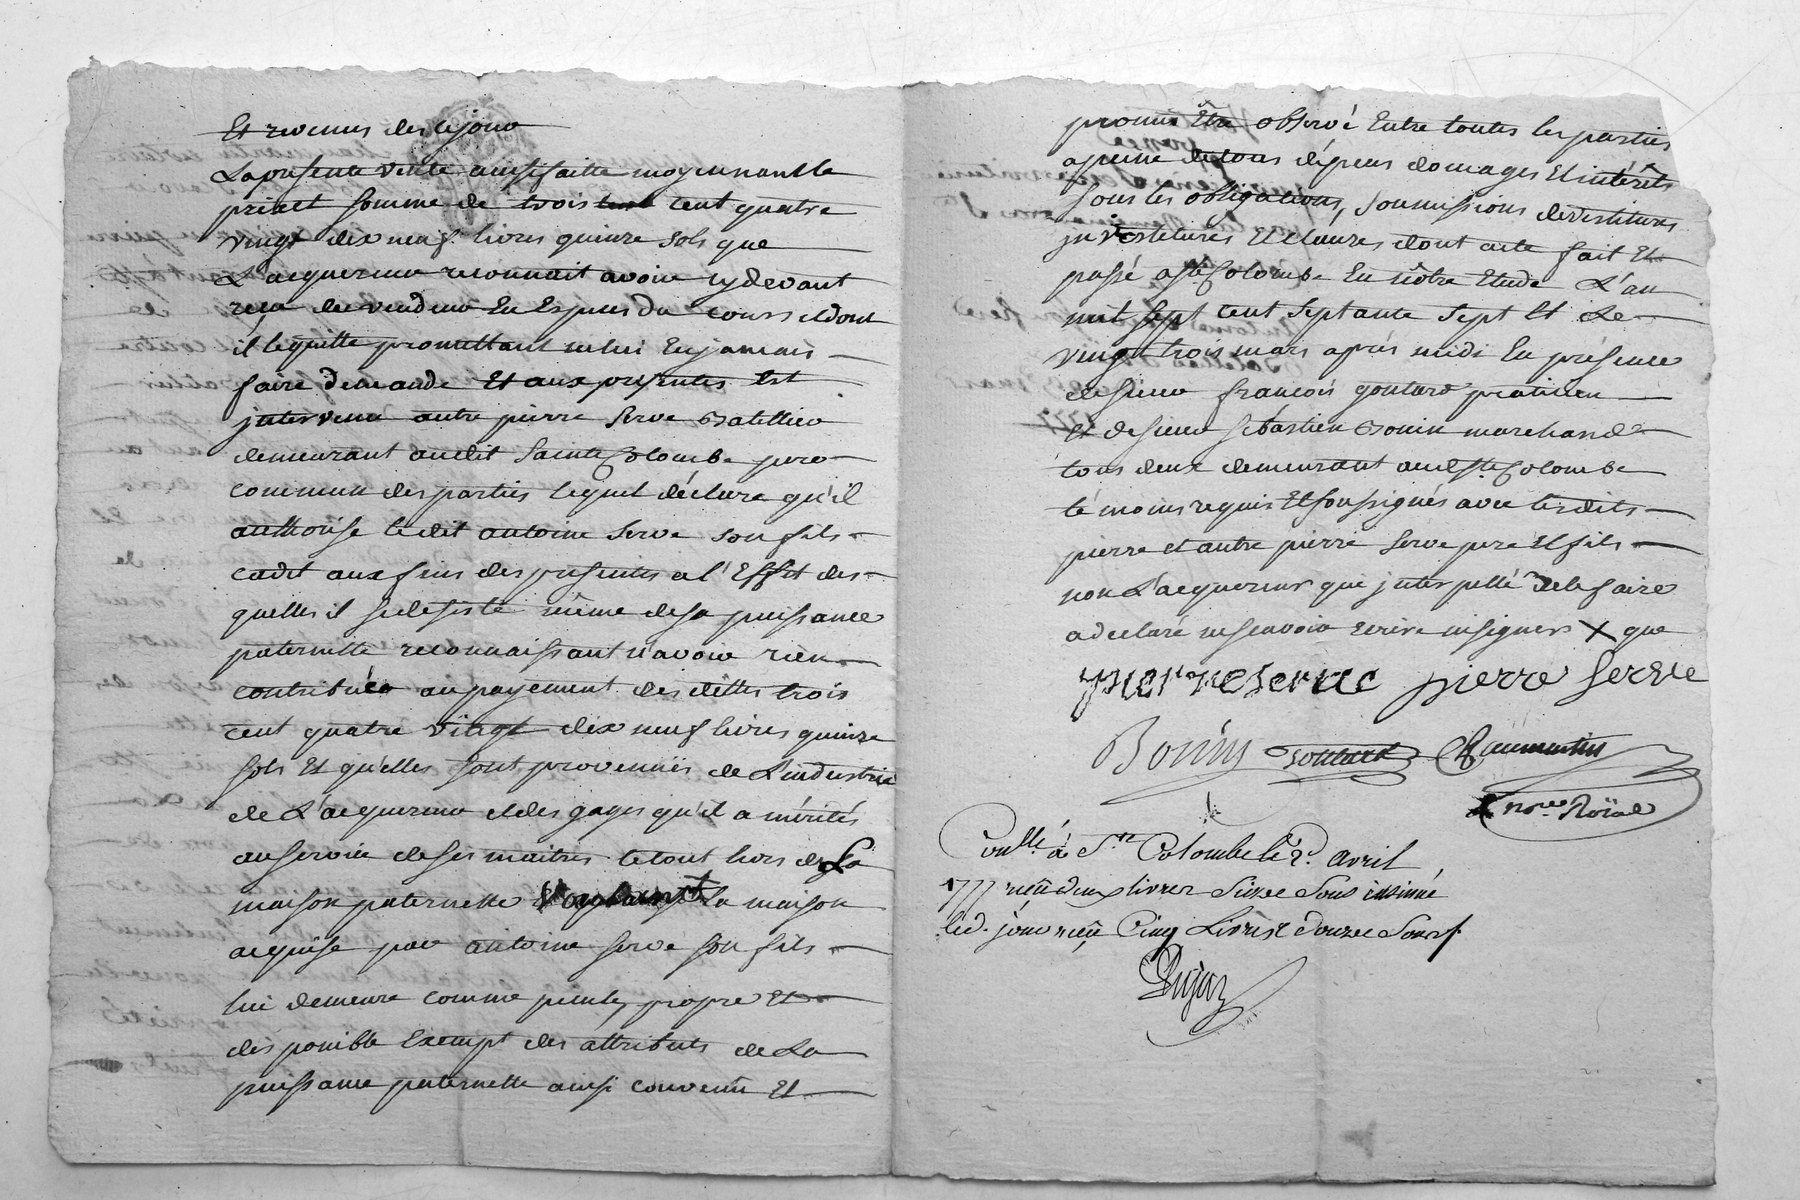 Et revenus des ce jour
La presente vente ainsi faitte moyennant le
prix et somme de trois cent quatre
vingt dix neuf livres quinze sols que
L'acquereur reconnait avoir cy devant
reçu du vendeur En Especes du cours et dont
il le quitte promettant ne lui En jamais
faire demande Et aux presentes Est
jntervenu autre pierre Serve Batellier
demeurant audit Sainte Colombe pere
commun des parties lequel déclare qu'il
authorise ledit antoine Serve son fils
cadet aux fins des presentes a l'Effet des
quelles il se desiste même de sa puissance
paternelle reconnaissant n'avoir rien
contribuéer au payement des dittes trois
cent quatre vingt dix neuf livres quinze
sols Et qu'elles sont provenües de L'industrie
de L'acquereur et des gages qu'il a mérités
au service de ses maitres le tout hors de La
maison paternelle voulant la maison
acquise par antoine Serve son fils
lui demeure comme pecule, propre Et
disponible Exempt des attributs de La
puissance paternelle ainsi convenu Et
promis Être observé Entre toutes les parties
a peine de tous dépens domages Et intérêts
sous les obligations, soumissions devestitures
jnvestitures Et clauses dont acte fait Et
passé a Ste Colombe En nôtre Etude L'an
mil sept cent septante sept Et Le
vingt trois mars après midi En présence
de sieur françois goutard praticien
et de sieur sébastien Bonin marchand
tous deux demeurant aud. Ste Colombe
témoins requis Et soussignés avec lesdits
pierre et autre pierre Serve pere Et fils
non L'acquereur qui jnterpellé de le faire
a declaré ne sçavoir ecrire ni signer X que
pierre serve pierre serve
Bonin goutard Chaumartin
nore Roïal
Conllé à Ste Colombe le 2. avril
1777 reçu deux livres seize sous insinué
led. jour reçu Cinq Livres douze sous